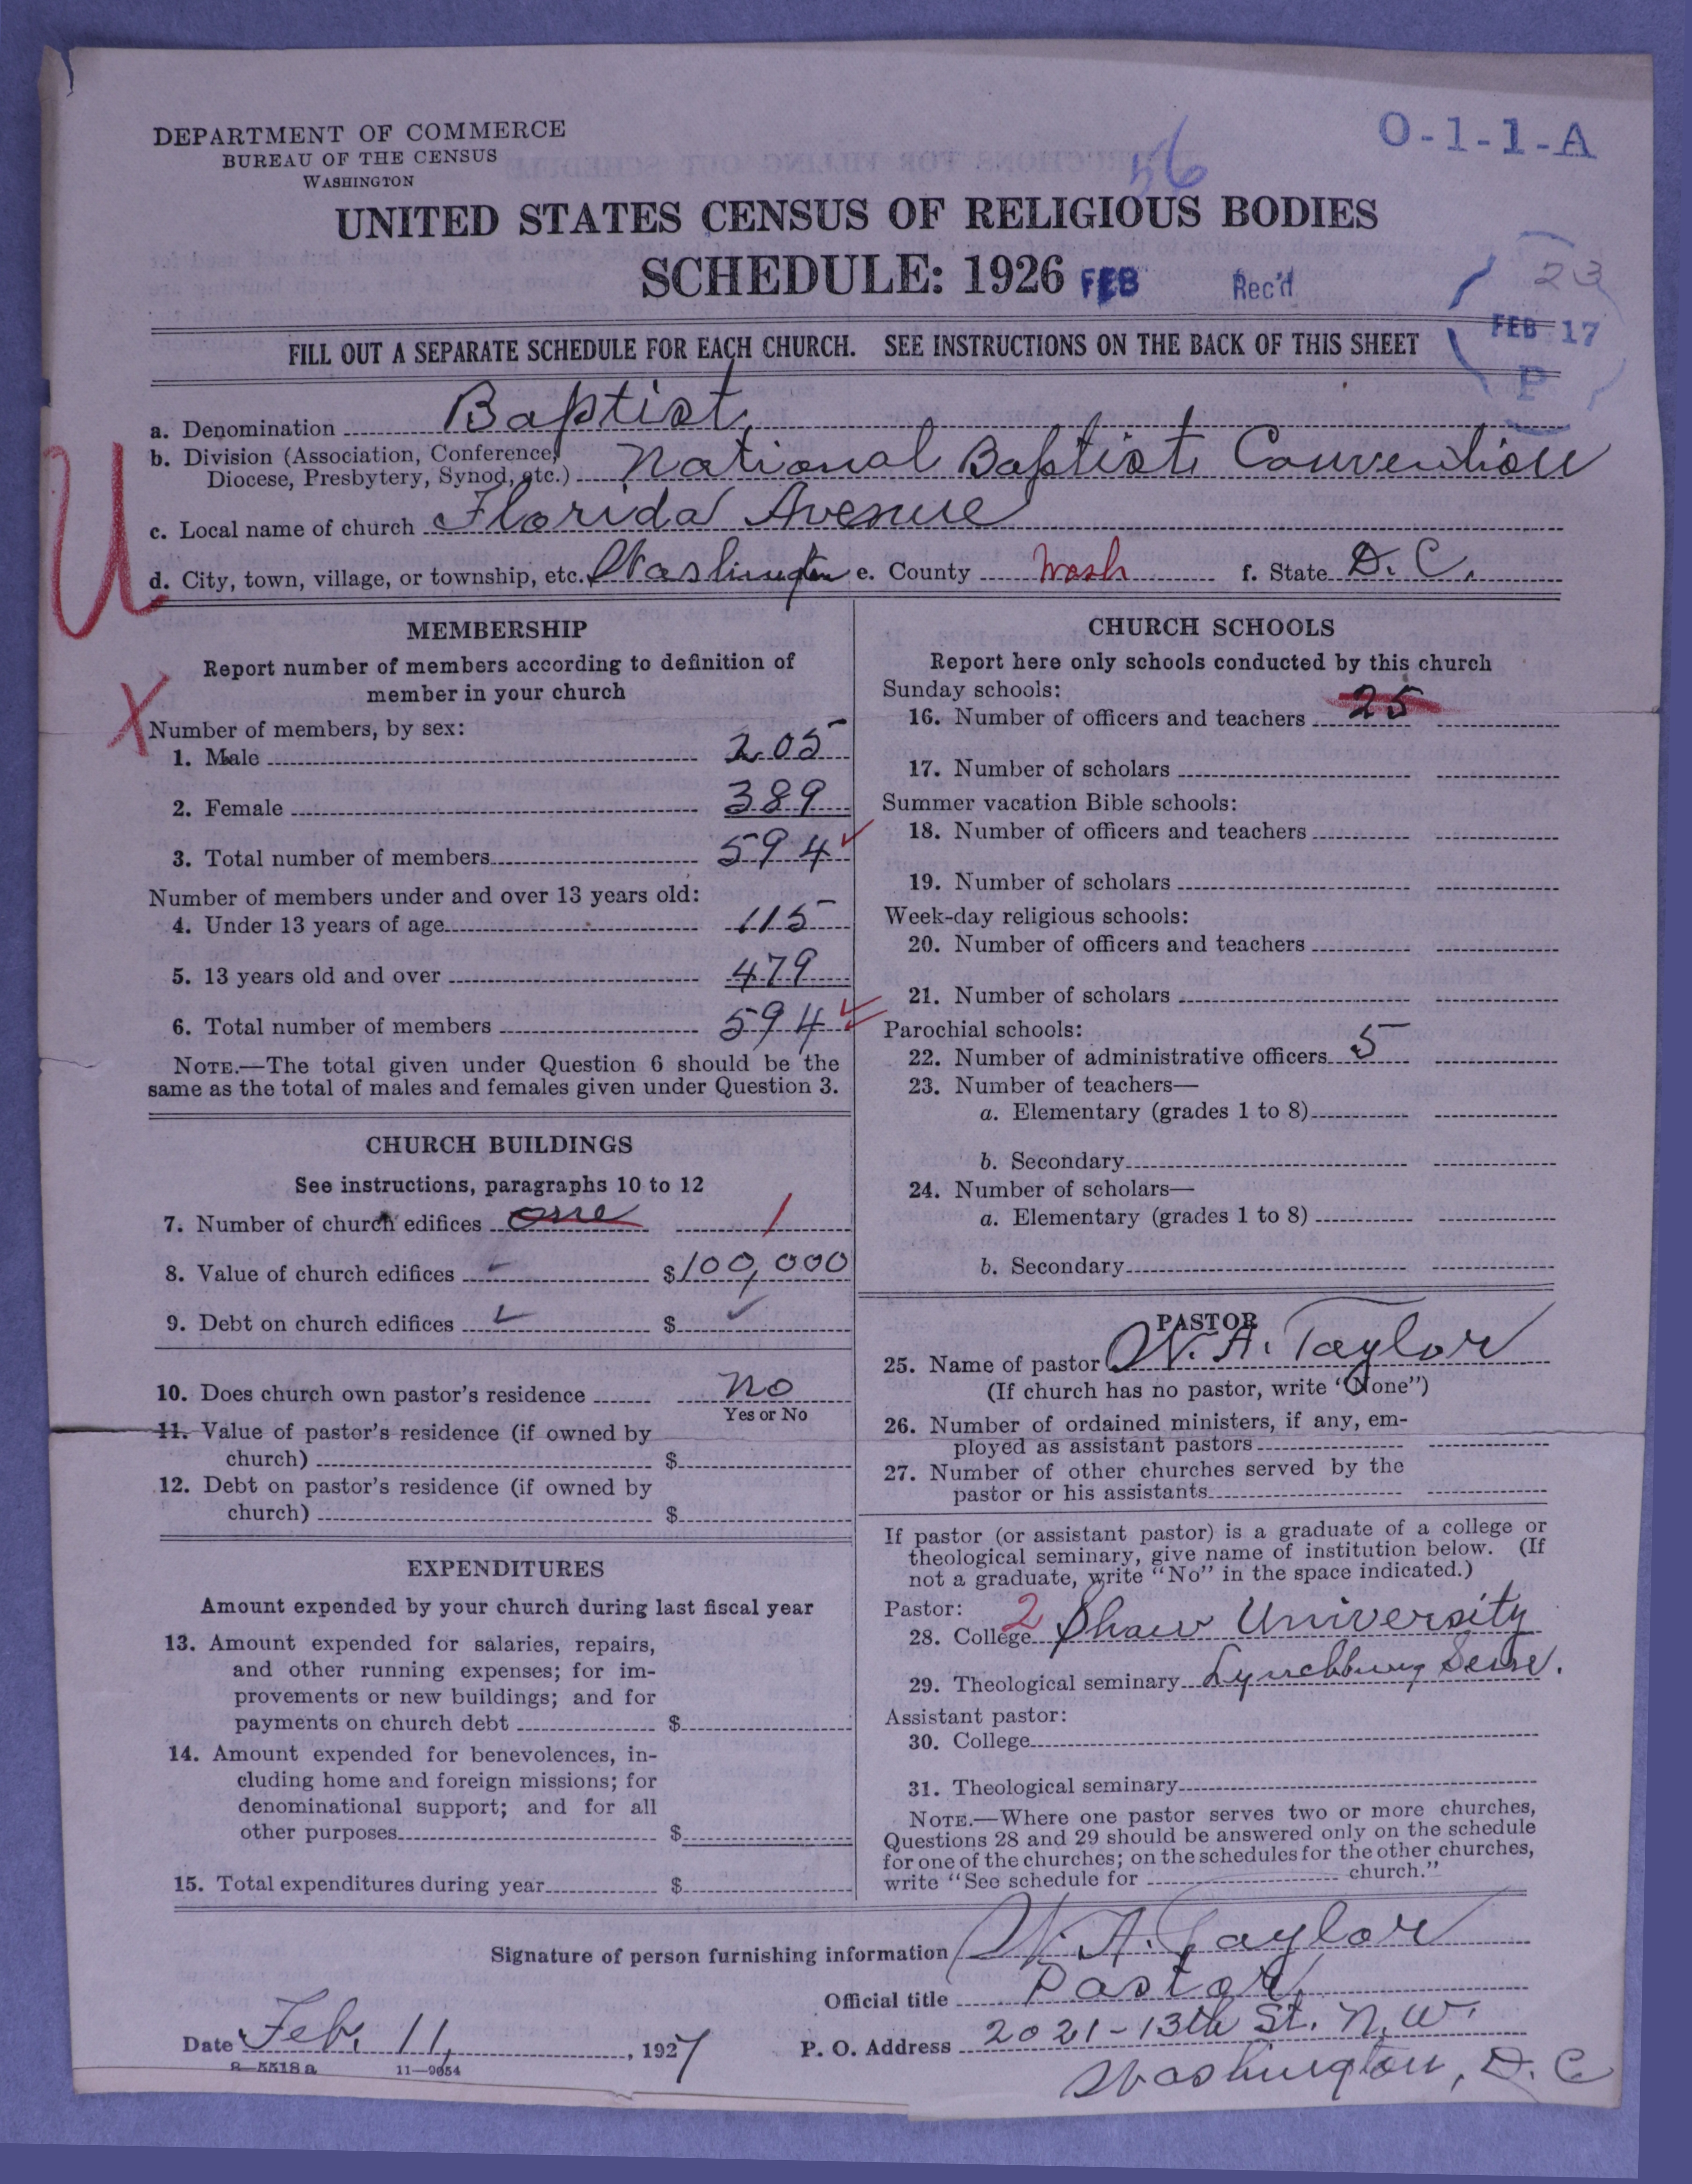 DEPARTMENT OF COMMERCE
BUREAU OF THE CENSUS
WASHINGTON
O-1-1-A
56
UNITED STATES CENSUS OF RELIGIOUS BODIES
SCHEDULE: 1926 FEB Rec'd
23
FEB 17
P
FILL OUT A SEPARATE SCHEDULE FOR EACH CHURCH. SEE INSTRUCTIONS ON THE BACK OF THIS SHEET
a. Denomination Baptist
b. Division (Association, Conference,
Diocese, Presbytery, Synod, etc.) National Baptist Convention
c. Local name of church Florida Avenue
d. City, town, village, or township, etc. Washington e. County Wash f. State D. C.
U
X
MEMBERSHIP
Report number of members according to definition of
member in your church
Number of members, by sex:
1. Male 205
2. Female 389
3. Total number of members 594
Number of members under and over 13 years old:
4. Under 13 years of age 115
5. 13 years old and over 479
6. Total number of members 594
NOTE.—The total given under Question 6 should be the
same as the total of males and females given under Question 3.
CHURCH BUILDINGS
See instructions, paragraphs 10 to 12
7. Number of church edifices one 1
8. Value of church edifices $100,000
9. Debt on church edifices $
10. Does church own pastor's residence no
Yes or No
11. Value of pastor's residence (if owned by
church) $
12. Debt on pastor's residence (if owned by
church) $
EXPENDITURES
Amount expended by your church during last fiscal year
13. Amount expended for salaries, repairs,
and other running expenses; for im-
provements or new buildings; and for
payments on church debt $
14. Amount expended for benevolences, in-
cluding home and foreign missions; for
denominational support; and for all
other purposes $
15. Total expenditures during year $
CHURCH SCHOOLS
Report here only schools conducted by this church
Sunday schools:
16. Number of officers and teachers 25
17. Number of scholars
Summer vacation Bible schools:
18. Number of officers and teachers
19. Number of scholars
Week-day religious schools:
20. Number of officers and teachers
21. Number of scholars
Parochial schools:
22. Number of administrative officers 5
23. Number of teachers—
a. Elementary (grades 1 to 8)
b. Secondary
24. Number of scholars—
a. Elementary (grades 1 to 8)
b. Secondary
PASTOR
25. Name of pastor W. A. Taylor
(If church has no pastor, write "None")
26. Number of ordained ministers, if any, em-
ployed as assistant pastors
27. Number of other churches served by the
pastor or his assistants
If pastor (or assistant pastor) is a graduate of a college or
theological seminary, give name of institution below. (If
not a graduate, write "No" in the space indicated.)
Pastor: 2
28. College Shaw University
29. Theological seminary Lynchburg Sem.
Assistant pastor:
30. College
31. Theological seminary
NOTE.—Where one pastor serves two or more churches,
Questions 28 and 29 should be answered only on the schedule
for one of the churches; on the schedules for the other churches,
write "See schedule for church."
Signature of person furnishing information W. A. Taylor
Official title Pastor
Date Feb. 11, 1927
P. O. Address 2021-13th St. N.W.
Washington, D. C
8-5518a 11-9054